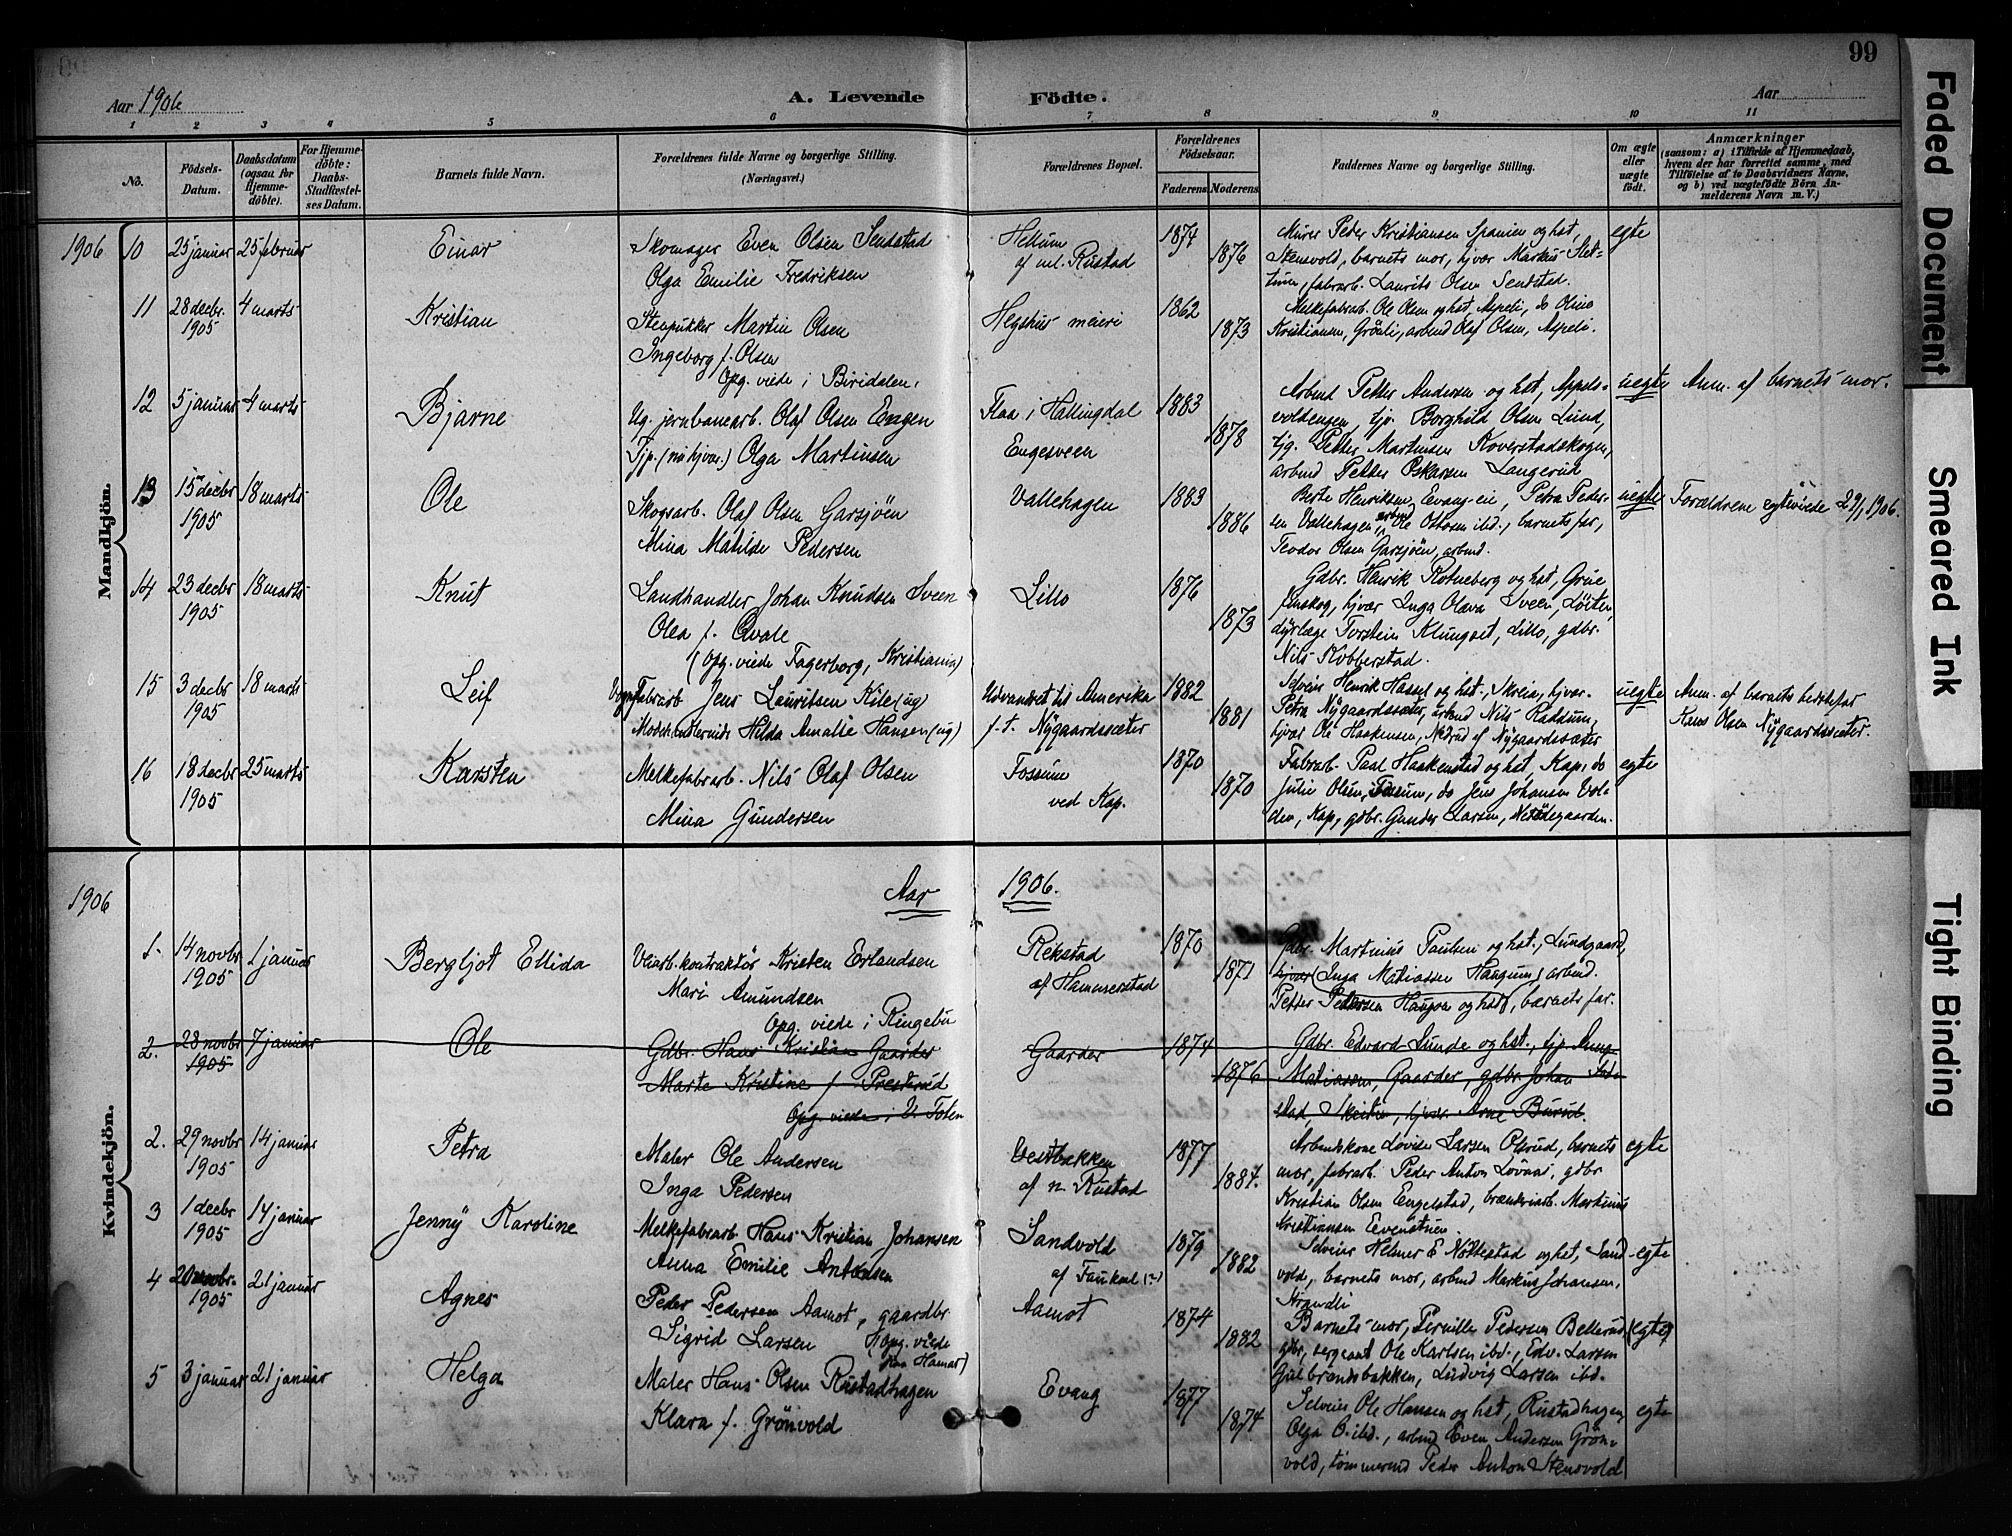 99
Aar 1906
A. Levende Födte.
Aar
1 2 3 4 5 6 7 8 9 10 11
No.
Födsels-Datum.
Daabsdatum (ogsaa for Hjemmedöbte).
For Hjemmedöbte: Daabs-Stadfæstelses Datum.
Barnets fulde Navn.
Forældrenes fulde Navne og borgerlige Stilling.
(Næringsvei.)
Forældrenes Bopæl.
Forældrenes Födselsaar.
Faderens. Moderens.
Faddernes Navne og borgerlige Stilling.
Om ægte eller uægte födt.
Anmærkninger
(saasom: a) i Tilfælde af Hjemmedaab,
hvem der har forrettet samme, med
Tilföielse af to Daabsvidners Navne,
og b) ved uægtefödte Börn An-
melderens Navn m. V.)
Mandkjön.
1906 10 25 januar 25 februar Einar
Skomager Even Olsen Sendstad
Olga Emilie Fredriksen
Hellum
af ml. Rustad
1874
1876
Murer Peder Kristiansen Spanien og hst,
Stensvold, barnets mor, hjvær Markus Slet-
tum, fabrarb. Laurits Olsen Sendstad.
egte
11 28 decbr. 1905 4 marts Kristian
Stenpukker Martin Olsen
Ingeborg f. Olsen
Opg. viede i Biridalen.
Hegshus meieri
1862
1873
Melkefabrarb. Ole Olsen og hst, Aspeli, do Oline
Kristiansen, Gröali, arbmd Olaf Olsen, Aspeli.
12 5 januar 4 marts Bjarne
Ug. jernbanearb. Olaf Olsen Engen
Tjp. (nu hjvær.) Olga Martinsen
Flaa i Hallingdal
Engesveen
1883
1878
Arbmd Petter Andersen og hst,
voldengen, tjp. Borghild Olsen Lund,
tjg. Petter Martinsen Koverstadskogen,
arbmd Petter Oskarsen Langerud
uegte
Anm. af barnets mor.
13 15 decbr 1905 18 marts Ole
Skogsarb. Olaf Olsen Garsjöen
Mina Matilde Pedersen
Vallehagen
1883
1886
Berte Henriksen Evang-eie, Petra Peder-
sen Vallehagen, arbmd Ole Ottosen ibd., barnets far,
Teodor Olsen Garsjöen, arbmd.
uegte
Forældrene egteviede 29/1 1906.
14 23 decbr 1905 18 marts Knut
Landhandler Johan Knudsen Sveen
Olea f. Qvale
(Opg. viede Fagerborg, Kristiania)
Lillo
1876
1873
Gdbr. Henrik Rotneberg og hst, Grue
finskog, hjvær Inga Olava Sveen, Löiten,
dyrlæge Torstein Klungset, Lillo, gdbr.
Nils Kobberstad.
15 3 decbr 1905 18 marts Leif
Vognfabrarb Jens Lauritsen Kile (ug)
Modehandlerinde Hilda Amalie Hansen (ug)
Udvandret til Amerika
f. t. Nygaardssæter
1882
1881
Selveier Henrik Hassel og hst., Skreia, hjvær.
Petra Nygaardssæter, arbmd Nils Raddum,
hjvær Ole Haakensen, Nedrud af Nygaardssæter
uegte
Anm. af barnets bedstefar
Hans Olsen Nygaardssæter.
16 18 decbr 1905 25 marts Karsten
Melkefabrarb. Nils Olaf Olsen
Mina Gundersen
Fossum
ved Kap.
1870
1870
Fabrarb. Paal Haakenstad og hst, Kap, do
Julie Olsen, Fossum, do Jens Johansen Vol-
den, Kap, gdbr. Gunder Larsen, Nedödegaarden.
egte
Kvindekjön.
1906 Aar 1906.
1. 14 novbr 1905 1 januar Bergljot Ellida
Veiarb. kontraktör Kristen Erlandsen
Mari Amundsen
Opg. viede i Ringebu
Rekstad
af Hammerstad
1870
1871
Gdbr. Martinius Paulsen og hst., Lundgaard,
hjvær (Inga Matiassen Haugum) arbmd.
Petter Pedersen Haugom og hst, barnets far.
2. 28 novbr 1905 7 januar Ole
Gdbr. Hans Kristian Gaarder
Marte Kristine f. Presterud
Opg. viede i V. Toten
Gaarder
1874
1876
Gdbr. Edvard Lunde og hst., tjp. Anna
Matiassen, Gaarder, gdbr. Johan
Arne Burul
2. 29 novbr 1905 14 januar Petra
Maler Ole Andersen
Inga Pedersen
Vestbakken
af n. Rustad
1877
1884.
Arbmdskone Lovise Larsen Olsrud, barnets
mor, fabrarb. Peder Anton Lövaas, gdbr
Kristian Olsen Engelstad, brænderiarb. Martinius
Kristiansen Evenstuen.
egte
3 1 decbr 1905 14 januar Jenny Karoline
Melkefabrarb Hans Kristian Johansen
Anna Emilie Antonsen
Sandvold
af Faukal (n)
1879
1882
Selveier Helmer E Nöttestad og hst, Sand-
vold, barnets mor, arbmd Markus Johansen,
Strandli
egte
4 20 novbr. 1905 21 januar Agnes
Peder Pedersen Aamot, gaardbr.
Sigrid Larsen (Opg. viede
paa Hamar)
Aamot
1874
1882
Barnets mor, Pernille Pedersen Bellerud
gdbr, sergeant Ole Karlsen ibd., Edv. Larsen
Gulbrandsbakken, Ludvig Larsen ibd.
(egte)
5 3 januar 21 januar Helga
Maler Hans Olsen Rustadhagen
Klara f. Grönvold
Evang
1877
1874
Selveier Ole Hansen og hst, Rustadhagen,
Olga O. ibd., arbmd Even Andersen Grön-
vold, tömmermd Peder Anton Stensvold
egte
Faded Document
Smeared Ink
Tight Binding